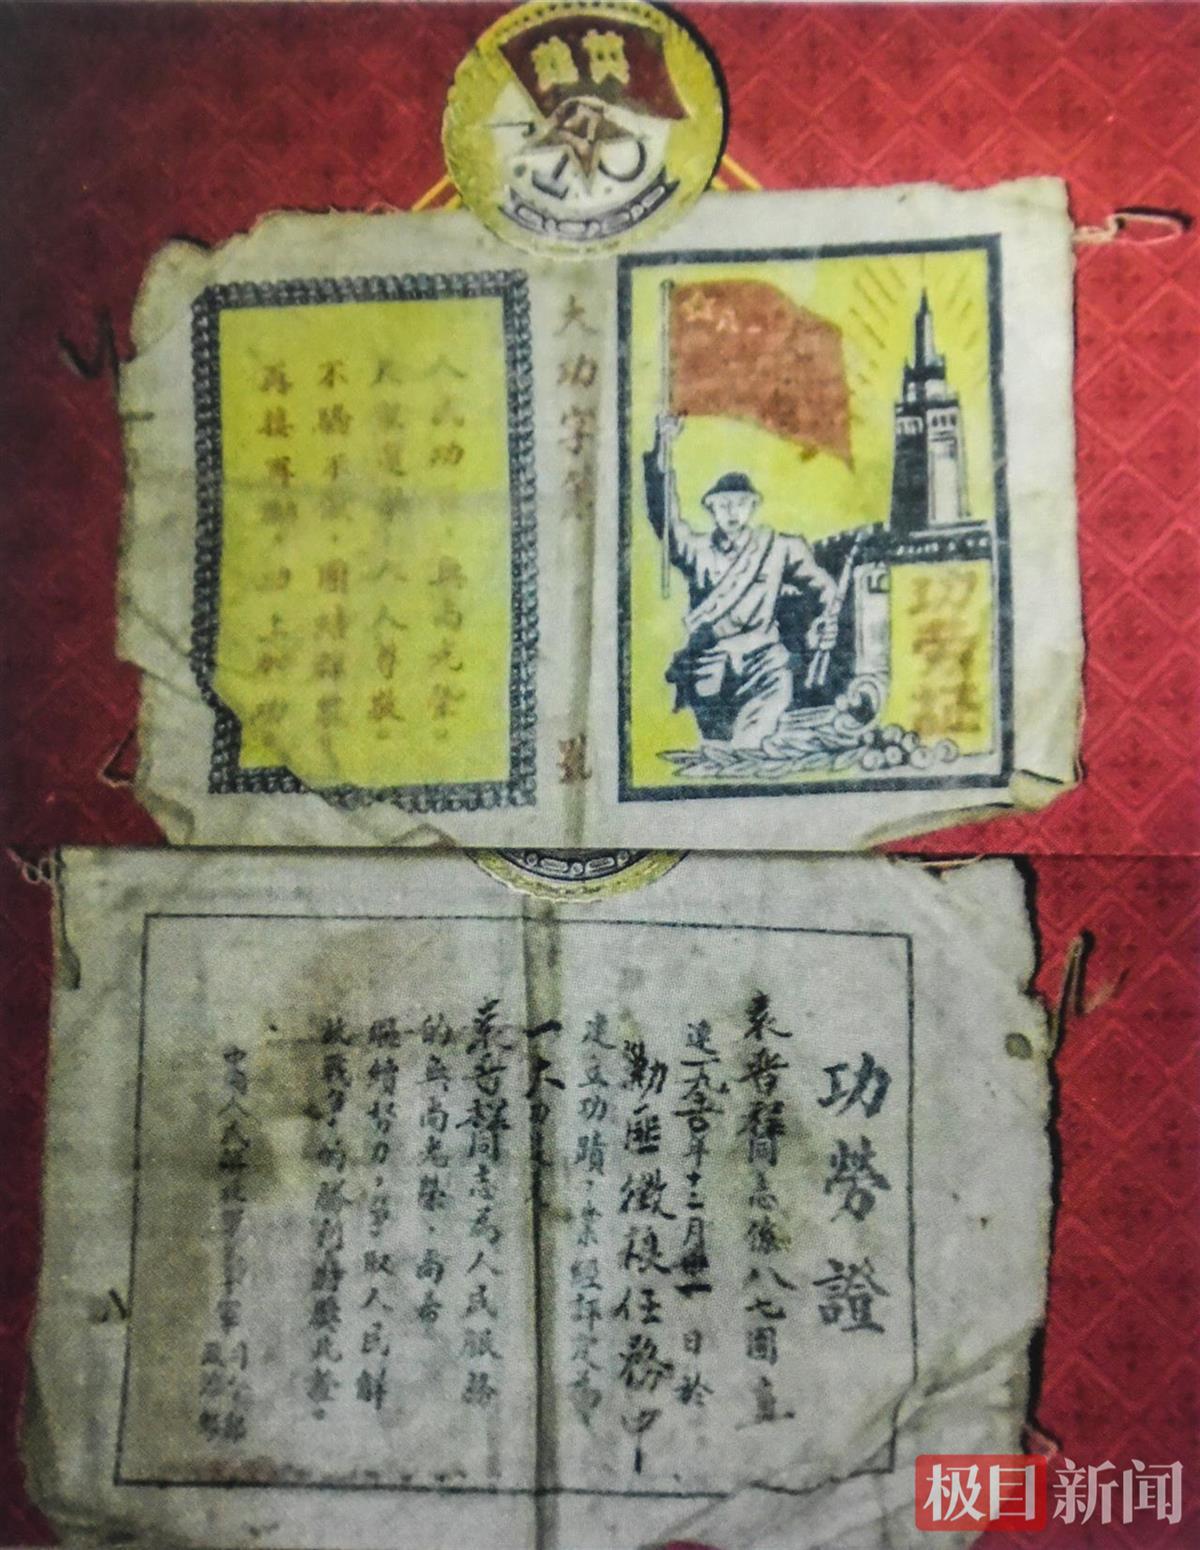 英雄
功劳証
大功字第
號
人民功
無尚光榮。
人人尊敬。
不驕不
團結群眾
再接再
功上加功
功勞證
袁普祥同志係八七團直
連一九五〇年十二月卅一日於
勦匪徵糧任務中
建立功蹟，業經評定為
一大功
袁普祥同志為人民服務
的無尚光榮，尚希
繼續努力，爭取人民解
放戰爭的勝利特頒此證。
中國人民解放軍
政治部
极目新闻